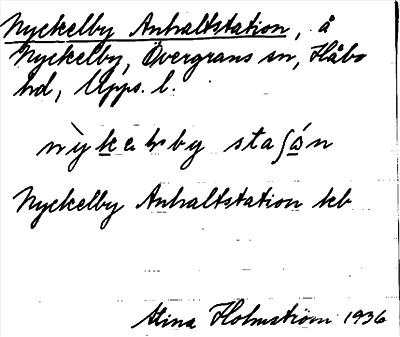 Nyckelby Anhaltstation, å
Nyckelby, Övergrans sn, Håbo
hd, Upps. l.
by staʃón
Nyckelby Anhaltstation kb
Stina Holmström 1936